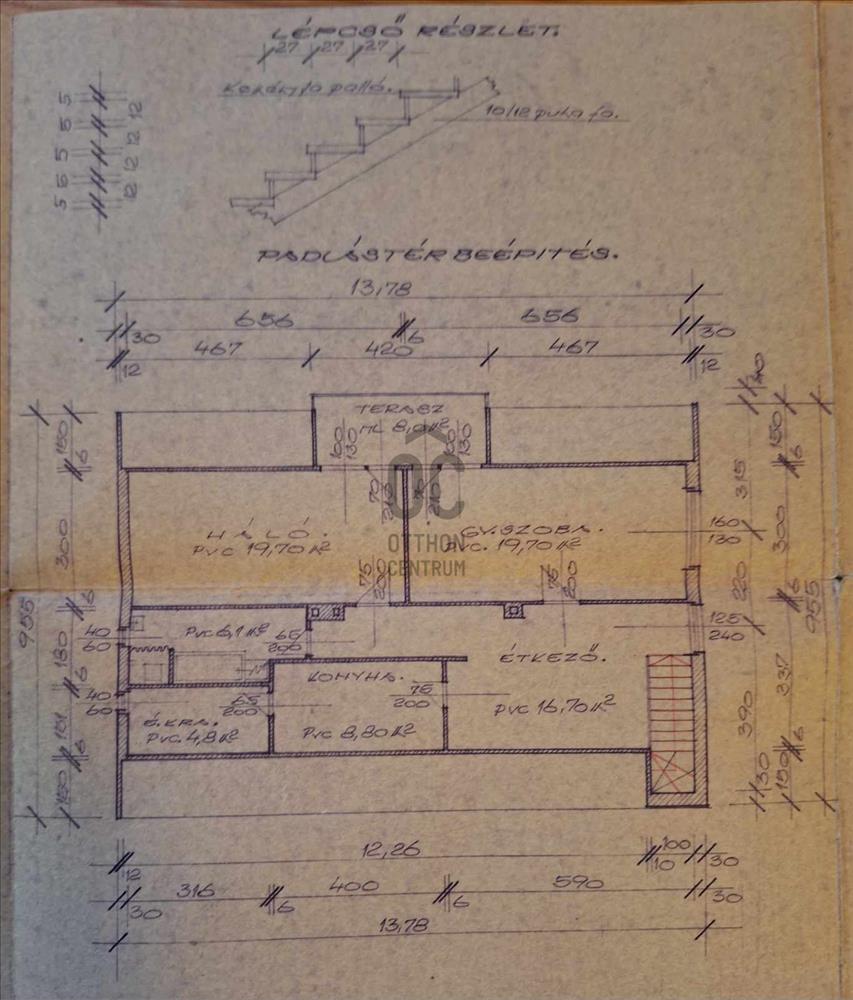 LÉPCSŐ RÉSZLET.
27 27 27
10/12 puha fa.
5 5 5 5 5
12 12 12 12
PADLÁSTÉR BEÉPITÉS.
13,78
656 6 656
30 30
467 420 467
12 12
TERASZ
8,0 M²
100/130 100/130
70/210
HÁLÓ.
PVC 19,70 M²
GY. SZOBA.
PVC. 19,70 M²
OC
OTTHON
CENTRUM
160/130
75/200 75/200
125/240
40/60
PVC 6,1 M²
65/200
ÉTKEZŐ.
PVC 16,70 M²
KONYHA.
75/200
PVC 8,80 M²
40/60
65/200
É. KRA.
PVC. 4,8 M²
955
150 6 300 6 180 6 161 6 150
315 220 390 30
150 6 300 6 337 6 150
955
12,26 100
12 10 30
316 400 590
30 6 6 30
13,78